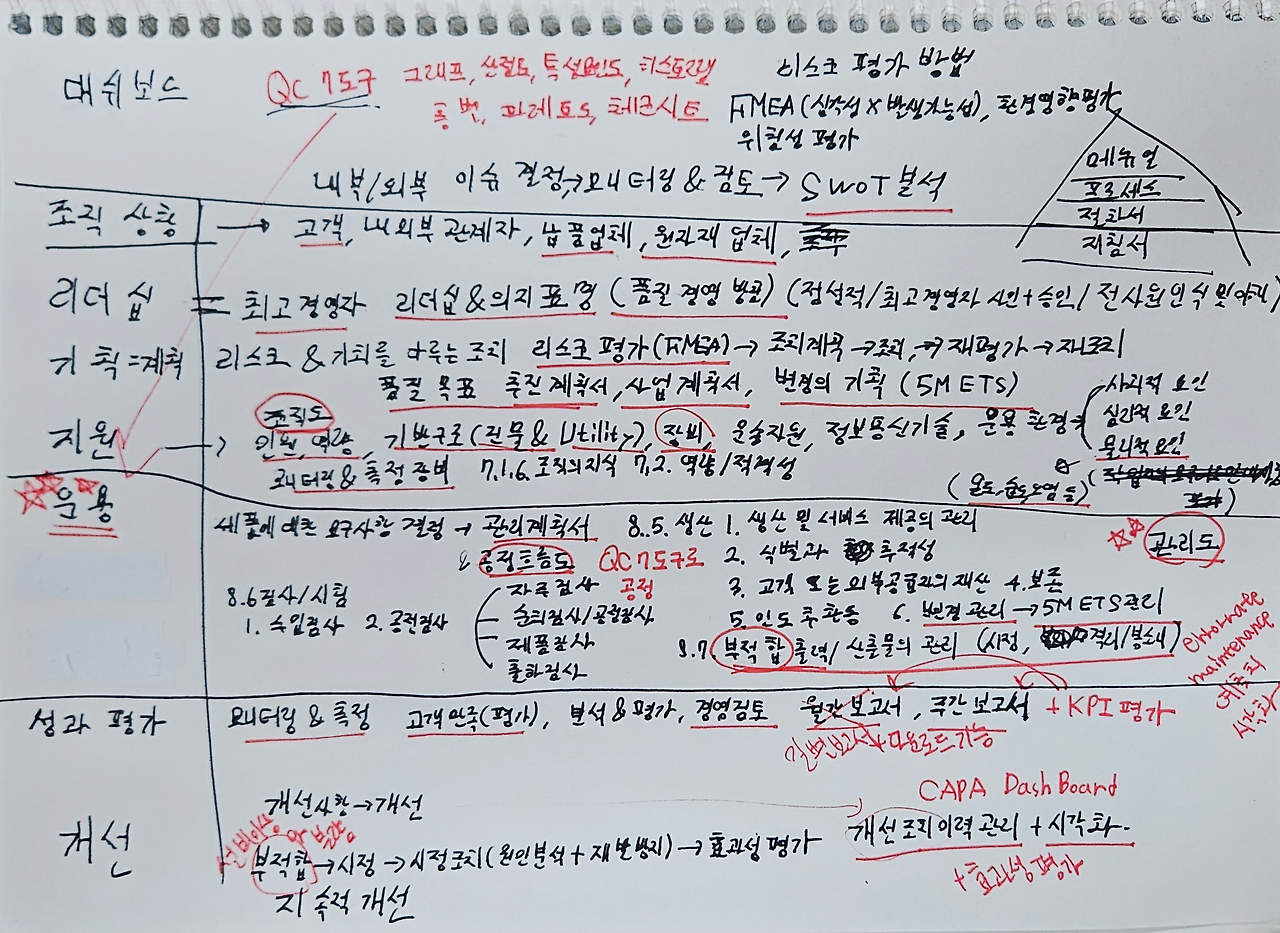 대쉬보드
QC 7도구
그래프, 산점도, 특성요인도, 히스토그램
층별, 파레토도, 체크시트
리스크 평가 방법
FMEA (심각성 X 발생가능성), 환경영향평가
위험성 평가
메뉴얼
프로세스
절차서
지침서
내부/외부 이슈 결정→모니터링 & 검토→ SWOT 분석
조직 상황 → 고객, 내외부 관계자, 납품업체, 원자재 업체,
리더십 = 최고경영자 리더십 & 의지표명 (품질 경영 방침) (정성적/최고경영자 사인+승인/ 전사원 인식 및)
기획=계획 리스크 & 기회를 다루는 조치 리스크 평가(FMEA)→ 조치계획→조치,→재평가→
품질 목표 추진계획서, 사업계획서, 변경의 기획 (5M ETS)
사회적 요인
심리적 요인
물리적요인
조직도
지원 → 인원, 역량, 기반구조(건물 & Utility), 장비, 운송자원, 정보통신기술, 운용 환경
모니터링 & 측정 장비 7.1.6. 조직의지식 7.2. 역량/적격성
(온도, 습도, 오염 등)
운용
제품에 대한 요구사항 결정 → 관리계획서
& 공정흐름도 QC 7도구로
공정
8.5. 생산 1. 생산 및 서비스 제공의 관리
2. 식별과 추적성
3. 고객 또는 외부공급자의 재산 4. 보존
5. 인도 후 활동 6. 변경 관리 → 5M ETS 관리
8.7. 부적합 출력/ 산출물의 관리 (시정, 격리/봉쇄)
관리도
8.6 검사/시험
1. 수입검사 2. 공정검사
자주검사
순회검사/공정검사
제품검사
출하검사
maintenance
예측의
시각화
성과 평가 모니터링 & 측정 고객만족(평가), 분석 & 평가, 경영검토 월간보고서, 주간보고서 + KPI 평가
일변보고서 + 다운로드 가능
CAPA DashBoard
개선
개선사항→개선
설비이슈 or 불량
부적합→시정→시정조치(원인분석+재발방지)→효과성 평가
지속적 개선
개선조치이력관리 + 시각화.
+효과성 평가